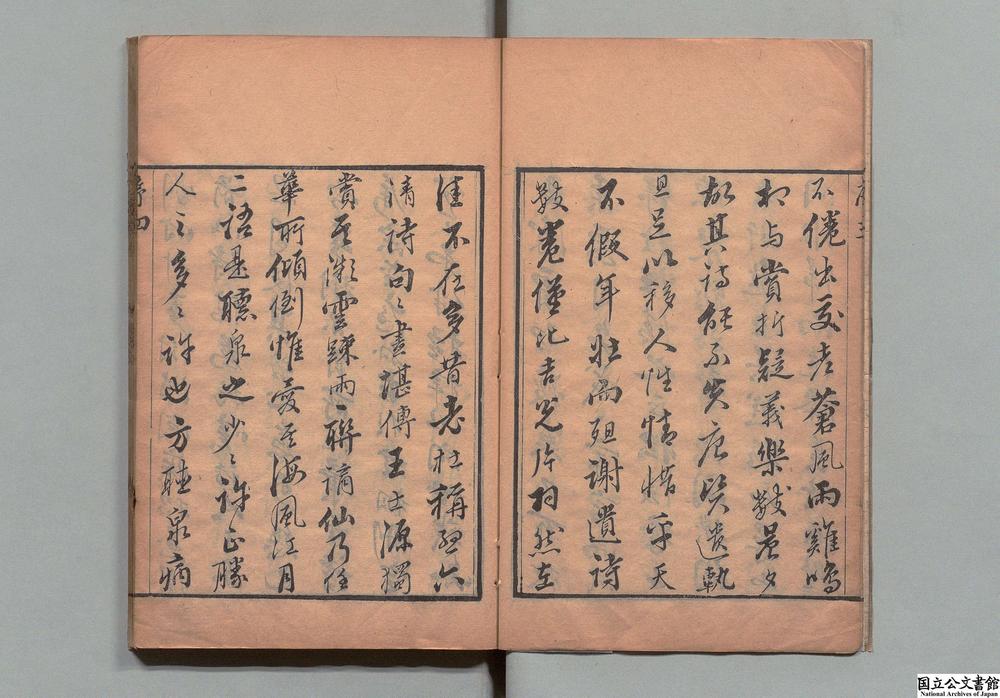 不倦出交老蒼風雨雞鳴
相与賞析疑義樂數晨夕
故其詩能不失唐賢遺軌
且足以移人性情惜乎天
不假年壯而殂謝遺詩
數卷僅比吉光片羽然在
佳不在多昔老杜稱孟六
清詩句〻盡堪傳王士源獨
賞其微雲疎雨一聯謫仙乃任
華所傾倒惟愛其海風江月
二語是聽泉之少〻許正勝
人之多〻許也方聽泉病
序四
国立公文書館
National Archives of Japan